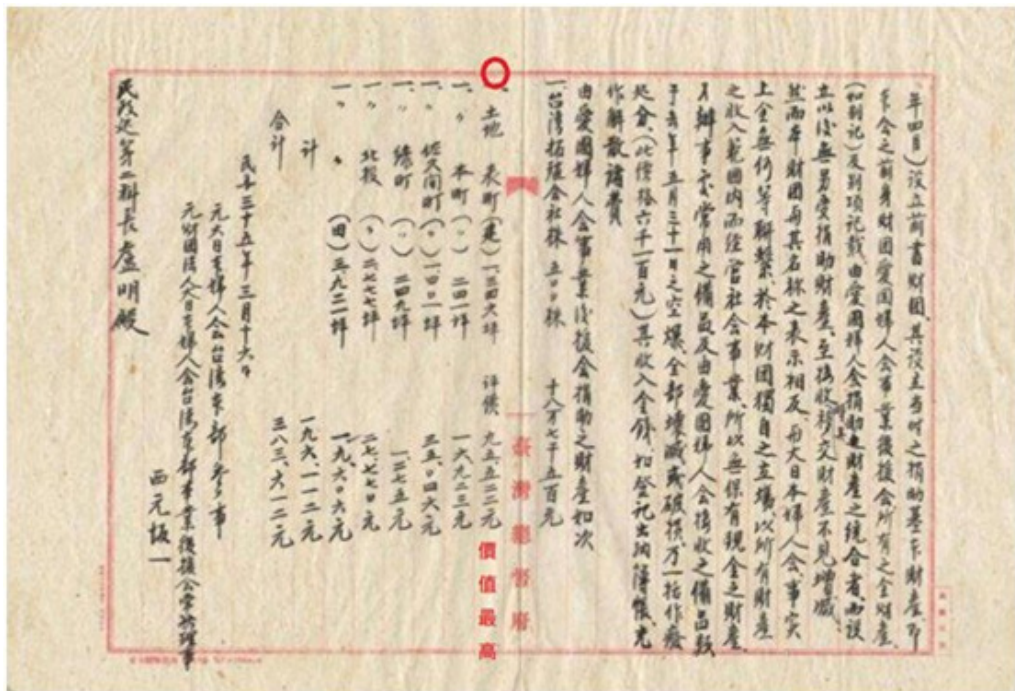 年四月)設立前書財團、其設立当时之捐助基本財產、即
本会之前身財团愛国婦人会事業後援会所有之全財產
(如别记)及别项记载由愛国婦人会捐助之財產之統合者、而設
立以後無另受捐助財產、至接收移交財產不見增減
然而本財团与其名称之表示相反、与大日本婦人会、事实
上全無何等联繫、於本財团獨自之立場、以所有財產
之收入範囲内而经营社会事業、所以無保有現金之財產
辦事處常用之備品及由愛国婦人会接收之備品致
于去年五月三十一日之空爆全部壊滅或破损、乃一括作廢
处分、(此價格六千一百元)其收入金錢、扣登记出納簿賬、充
作解散諸費
由愛国婦人会事業後援会捐助之財產如次
一、台湾拓殖会社株 五〇〇株 十八万七千五百元
臺灣總督府
價值最高
土地 表町(建)一、三四六坪 評價 九五、五二二元
一、〃 本町(〃)二四一坪 一六、九二三元
一、〃 佐久间町(〃)一、〇〇一坪 三五、〇四六元
一、〃 綠町(〃)二四九坪 一、二七五元
一、〃 北投(〃)二、七七七坪 二七、七七〇元
一、〃 〃(田)三、九二一坪 一九、六〇六元
計 一九六、一一二元
合計 三八三、六一二元
民国三十五年三月十六日
元大日本婦人会台湾本部参事
元財団法人大日本婦人会台湾本部事業後援会常務理事
西元板一
民政处第二科長 盧明 殿